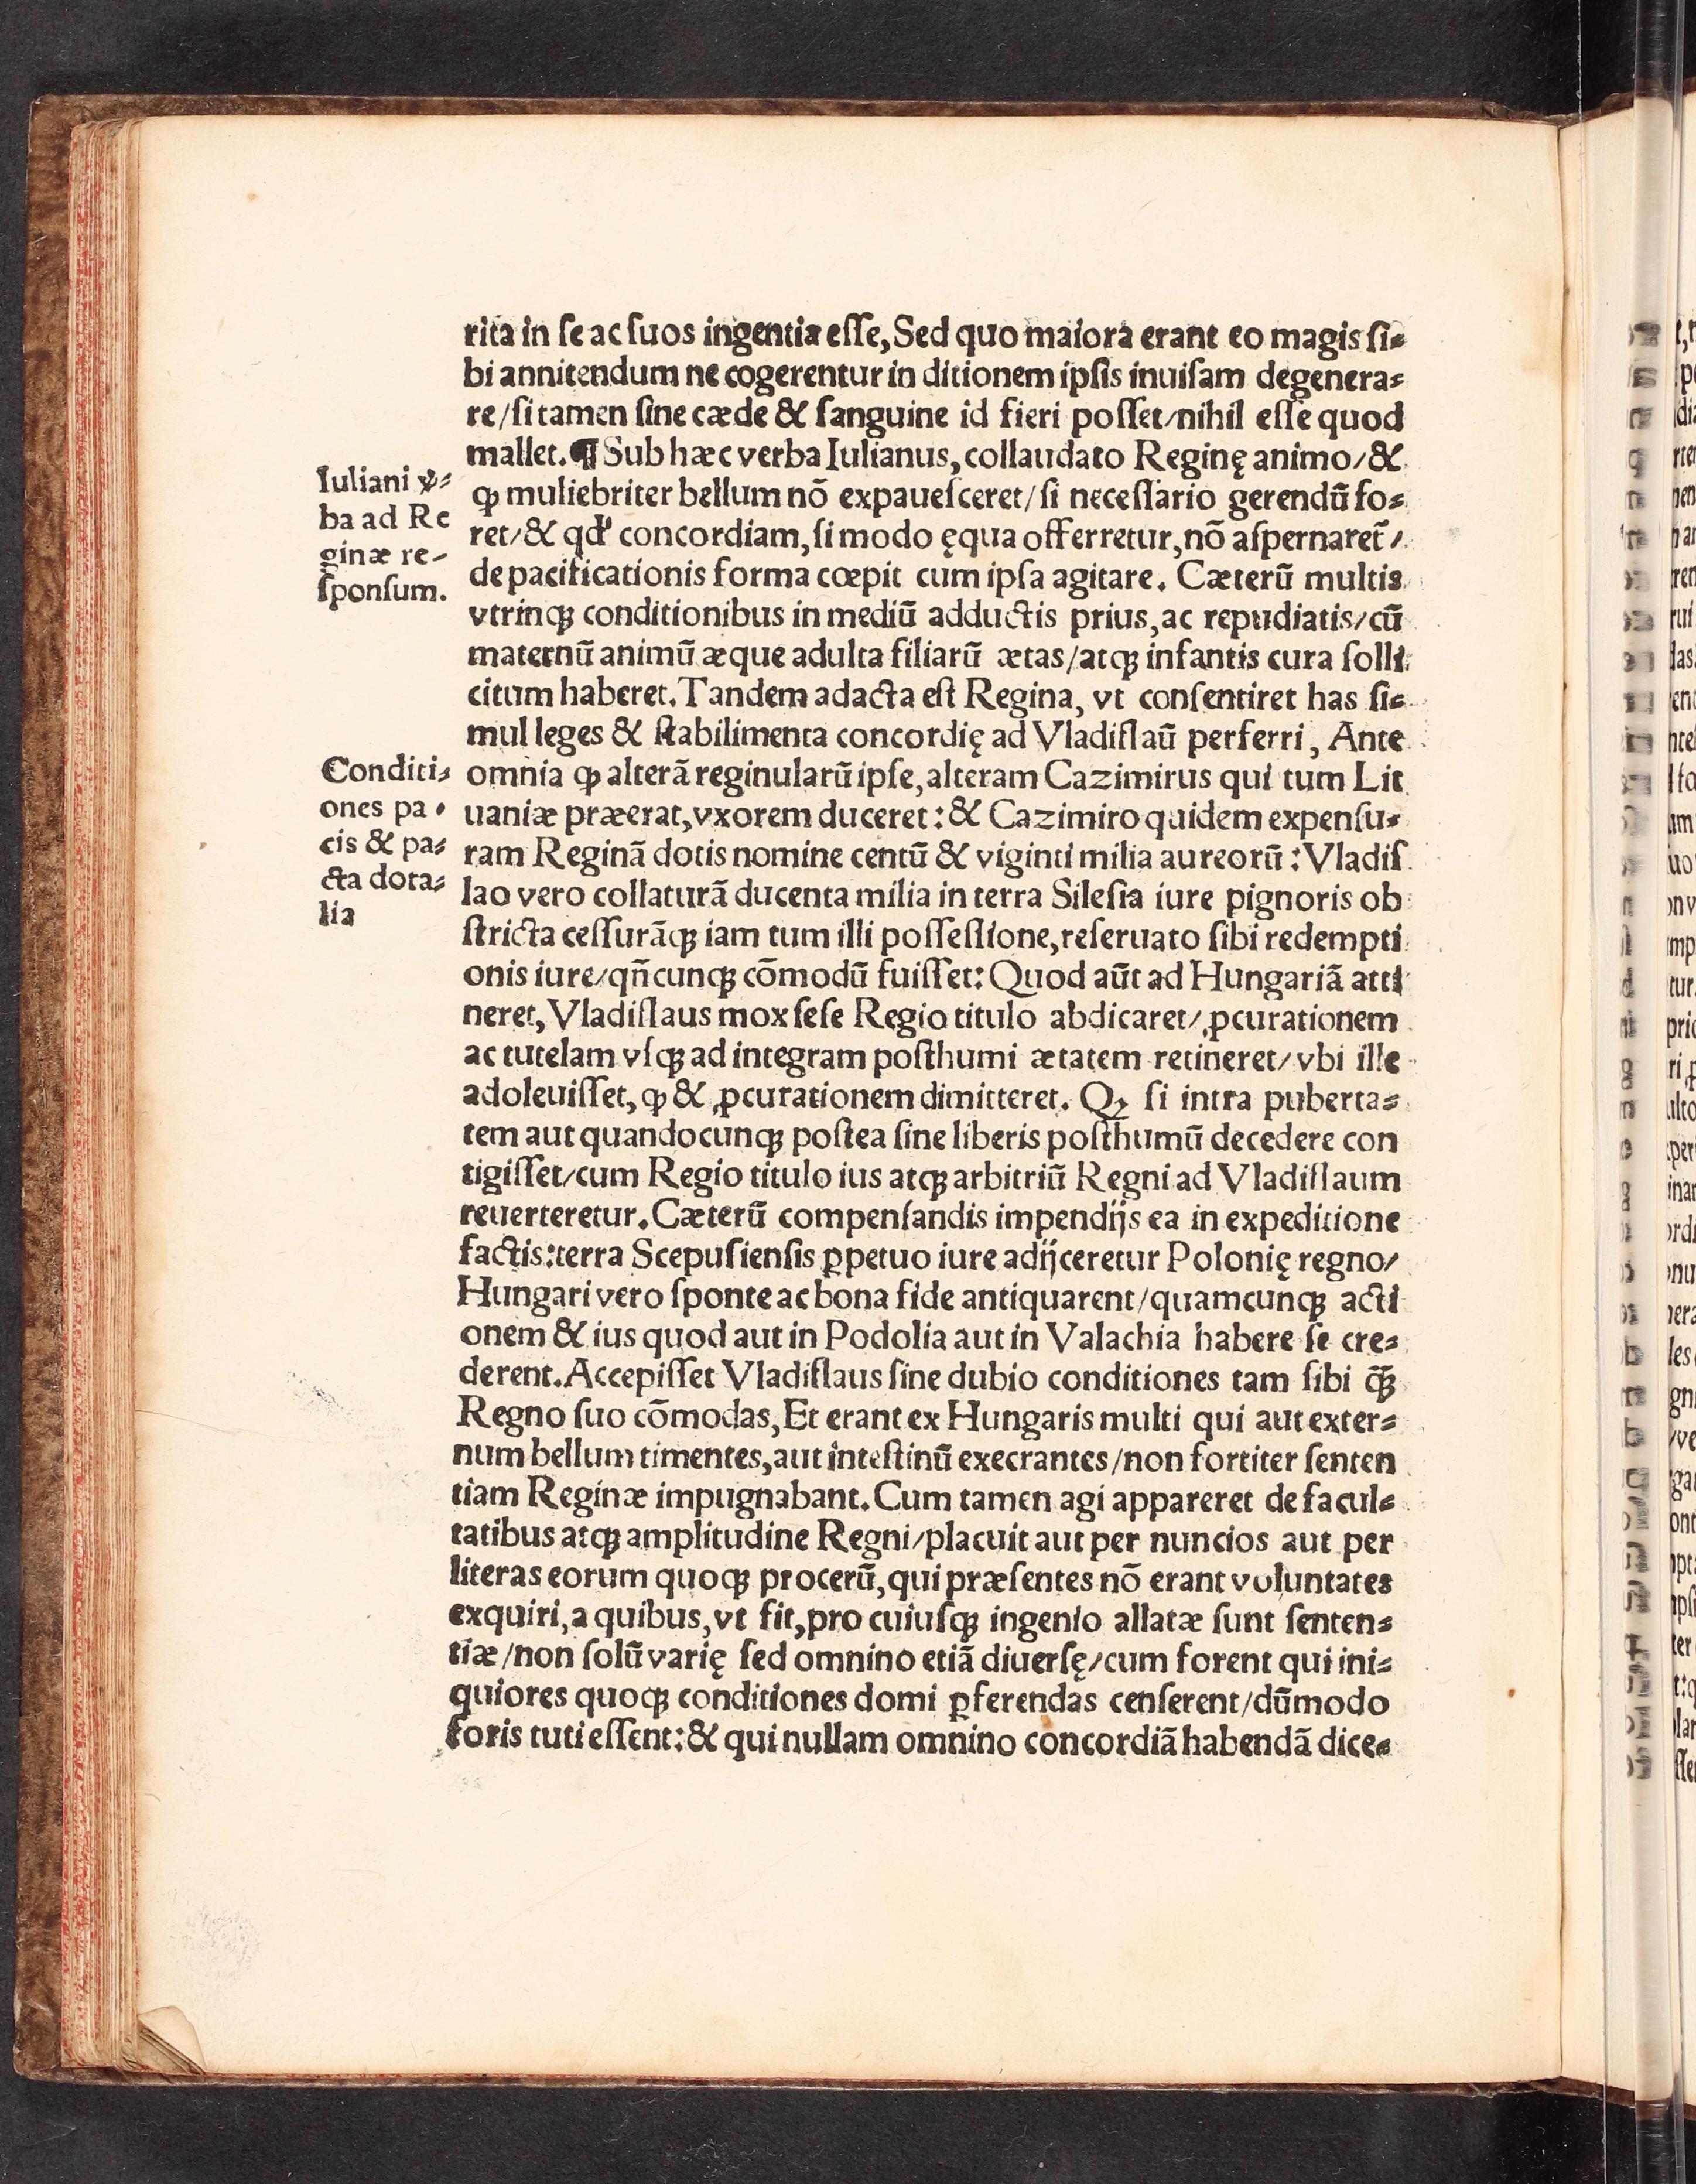 rita in ſe ac ſuos ingentia eſſe, Sed quo maiora erant eo magis ſi⸗
bi annitendum ne cogerentur in ditionem ipſis inuiſam degenera⸗
re/ſi tamen ſine cæde & ſanguine id fieri poſſet/nihil eſſe quod
mallet. ¶ Sub hæc verba Iulianus, collaudato Reginę animo/&
ꝙ muliebriter bellum nō expaueſceret/ſi neceſſario gerendū fo⸗
ret/& qđ concordiam, ſi modo ęqua offerretur, nō aſpernaret̃/
de pacificationis forma cœpit cum ipſa agitare. Cæterū multis
vtrinqꝫ conditionibus in mediū adductis prius, ac repudiatis/cū
maternū animū æque adulta filiarū ætas/atqꝫ infantis cura ſolli
citum haberet. Tandem adacta eſt Regina, vt conſentiret has ſi⸗
mul leges & ſtabilimenta concordię ad Vladiſlaū perferri, Ante
omnia ꝙ alterā reginularū ipſe, alteram Cazimirus qui tum Lit
uaniæ præerat, vxorem duceret: & Cazimiro quidem expenſu⸗
ram Reginā dotis nomine centū & viginti milia aureorū: Vladiſ
lao vero collaturā ducenta milia in terra Sileſia iure pignoris ob
ſtricta ceſſurāqꝫ iam tum illi poſſeſſione, reſeruato ſibi redempti
onis iure/qñcunqꝫ cōmodū fuiſſet: Quod aūt ad Hungariā atti
neret, Vladiſlaus mox ſeſe Regio titulo abdicaret/ꝓcurationem
ac tutelam vſqꝫ ad integram poſthumi ætatem retineret/vbi ille
adoleuiſſet, ꝙ & ꝓcurationem dimitteret. Qꝫ ſi intra puberta⸗
tem aut quandocunqꝫ poſtea ſine liberis poſthumū decedere con
tigiſſet/cum Regio titulo ius atqꝫ arbitriū Regni ad Vladiſlaum
reuerteretur. Cæterū compenſandis impendijs ea in expeditione
factis: terra Scepuſienſis ꝑpetuo iure adijceretur Polonię regno/
Hungari vero ſponte ac bona fide antiquarent/quamcunqꝫ acti
onem & ius quod aut in Podolia aut in Valachia habere ſe cre⸗
derent. Accepiſſet Vladiſlaus ſine dubio conditiones tam ſibi q̄ꝫ
Regno ſuo cōmodas, Et erant ex Hungaris multi qui aut exter⸗
num bellum timentes, aut inteſtinū execrantes/non fortiter ſenten
tiam Reginæ impugnabant. Cum tamen agi appareret de facul⸗
tatibus atqꝫ amplitudine Regni/placuit aut per nuncios aut per
literas eorum quoqꝫ procerū, qui præſentes nō erant voluntates
exquiri, a quibus, vt fit, pro cuiuſqꝫ ingenio allatæ ſunt ſenten⸗
tiæ/non ſolū varię ſed omnino etiā diuerſę/cum forent qui ini⸗
quiores quoqꝫ conditiones domi ꝑferendas cenſerent/dūmodo
foris tuti eſſent: & qui nullam omnino concordiā habendā dice⸗
Iuliani ꝟ⸗
ba ad Re
ginæ re⸗
ſponſum.
Conditi⸗
ones pa⸗
cis & pa⸗
cta dota⸗
lia